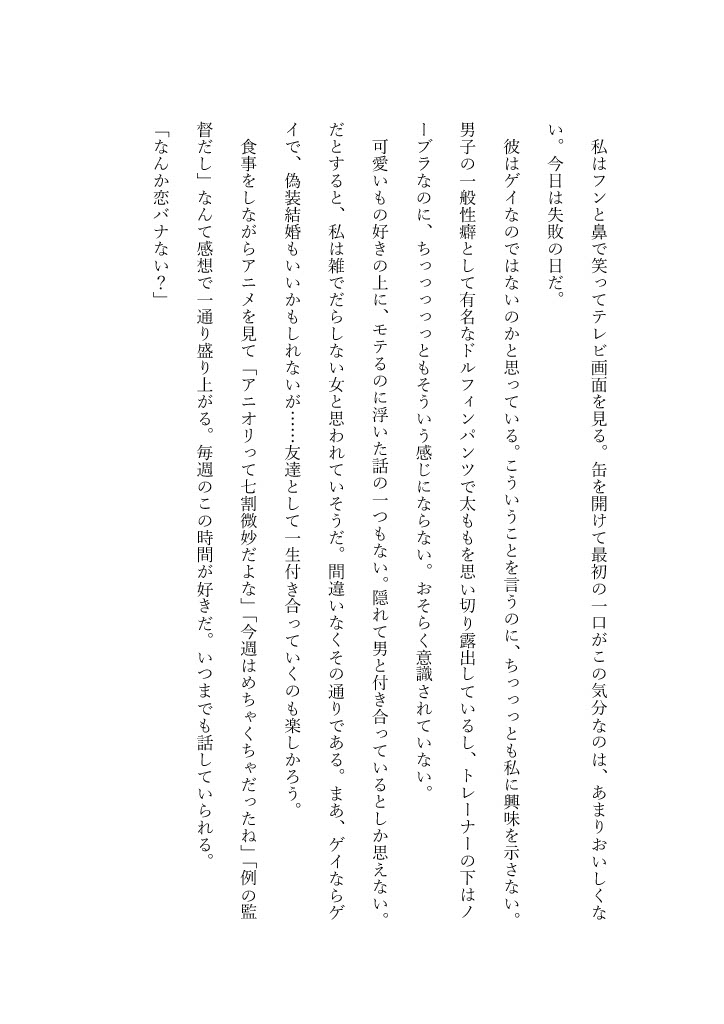 私はフンと鼻で笑ってテレビ画面を見る。缶を開けて最初の一口がこの気分なのは、あまりおいしくな
い。今日は失敗の日だ。
　彼はゲイなのではないのかと思っている。こういうことを言うのに、ちっっっとも私に興味を示さない。
男子の一般性癖として有名なドルフィンパンツで太ももを思い切り露出しているし、トレーナーの下はノ
ーブラなのに、ちっっっっっともそういう感じにならない。おそらく意識されていない。
　可愛いもの好きの上に、モテるのに浮いた話の一つもない。隠れて男と付き合っているとしか思えない。
だとすると、私は雑でだらしない女と思われていそうだ。間違いなくその通りである。まあ、ゲイならゲ
イで、偽装結婚もいいかもしれないが……友達として一生付き合っていくのも楽しかろう。
　食事をしながらアニメを見て「アニオリって七割微妙だよな」「今週はめちゃくちゃだったね」「例の監
督だし」なんて感想で一通り盛り上がる。毎週のこの時間が好きだ。いつまでも話していられる。
「なんか恋バナない？」